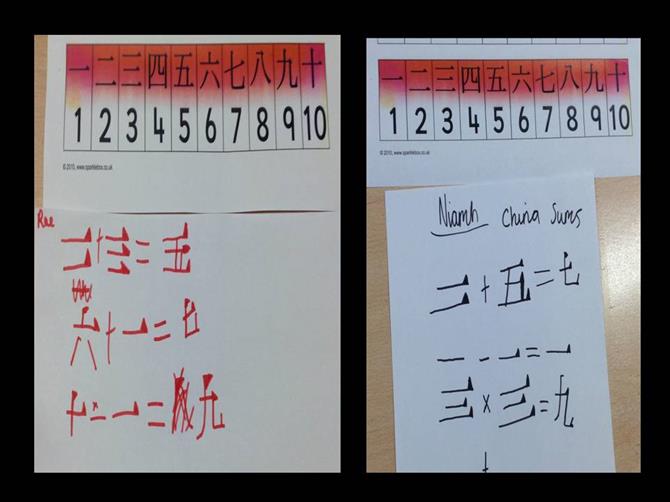 一 二 三 四 五 六 七 八 九 十
1 2 3 4 5 6 7 8 9 10
© 2010, www.sparklebox.co.uk
Rae
二+三=五
六+一=七
十-一=九
一 二 三 四 五 六 七 八 九 十
1 2 3 4 5 6 7 8 9 10
© 2010, www.sparklebox.co.uk
Niamh China Sums
二+五=七
一-一=一
三×三=九